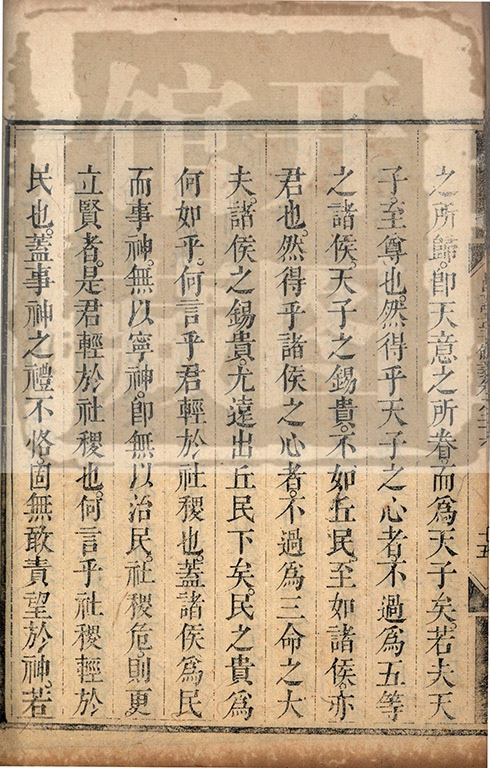 之所歸。卽天意之所眷。而爲天子矣。若夫天
子。至尊也。然得乎天子之心者。不過爲五等
之諸侯。天子之錫貴。不如丘民。至如諸侯。亦
君也。然得乎諸侯之心者。不過爲三命之大
夫。諸侯之錫貴。尤遠出丘民下矣。民之貴爲
何如乎。何言乎君輕於社稷也。蓋諸侯爲民
而事神。無以寧神。卽無以治民。社稷危。則更
立賢者。是君輕於社稷也。何言乎社稷輕於
民也。蓋事神之禮不恪。固無敢責望於神。若